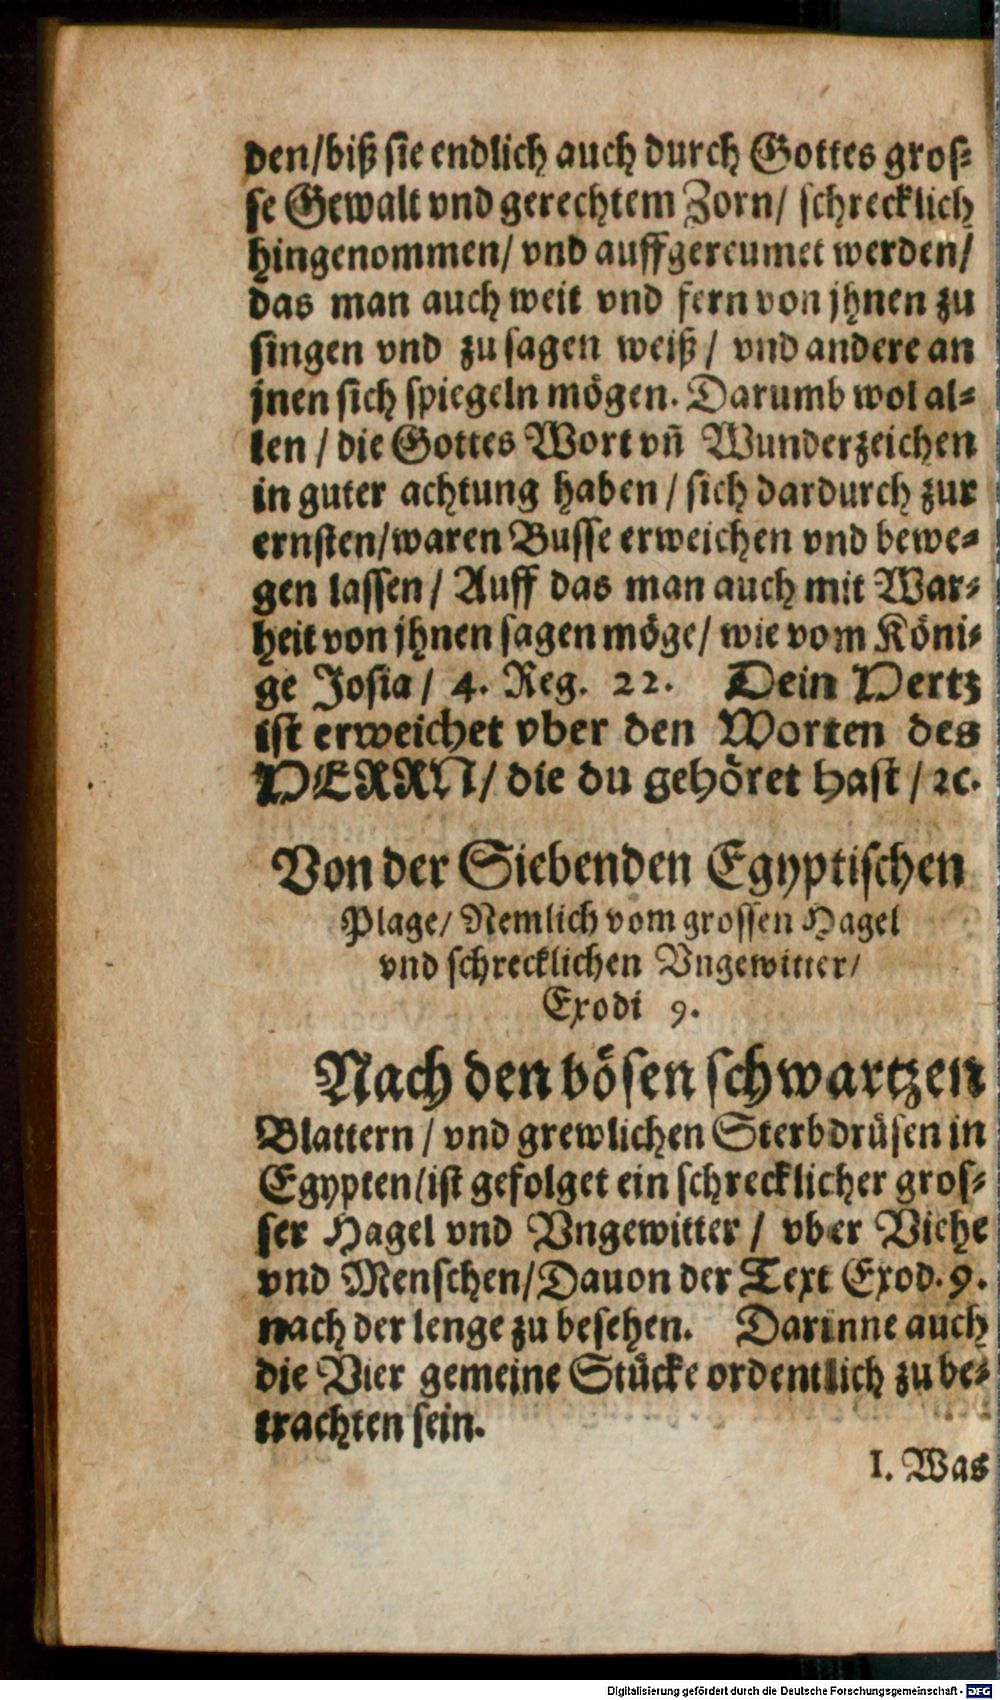 den/biß sie endlich auch durch Gottes gros-
se Gewalt vnd gerechtem Zorn/ schrecklich
hingenommen/ vnd auffgereumet werden/
das man auch weit vnd fern von jhnen zu
singen vnd zu sagen weiß / vnd andere an
jnen sich spiegeln mögen. Darumb wol al-
len / die Gottes Wort vñ Wunderzeichen
in guter achtung haben / sich dardurch zur
ernsten/waren Busse erweichen vnd bewe-
gen lassen / Auff das man auch mit War-
heit von jhnen sagen möge/ wie vom Köni-
ge Josia / 4. Reg. 22. Dein Hertz
ist erweichet vber den Worten des
HERRN/ die du gehöret hast / ꝛc.
Von der Siebenden Egyptischen
Plage/ Nemlich vom grossen Hagel
vnd schrecklichen Vngewitter/
Exodi 9.
Nach den bösen schwartzen
Blattern / vnd grewlichen Sterbdrüsen in
Egypten/ist gefolget ein schrecklicher gros-
ser Hagel vnd Vngewitter / vber Viehe
vnd Menschen/Dauon der Text Exod. 9.
nach der lenge zu besehen. Darinne auch
die Vier gemeine Stücke ordentlich zu be-
trachten sein.
I. Was
Digitalisierung gefördert durch die Deutsche Forschungsgemeinschaft - DFG